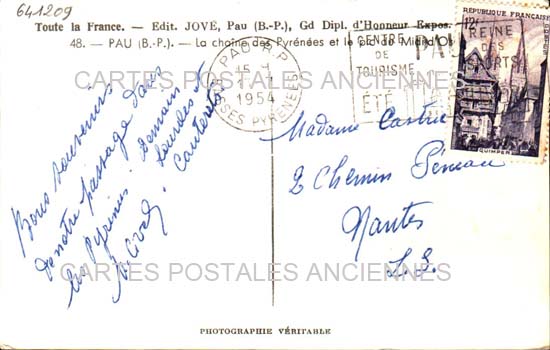 641209
Toute la France. — Edit. JOVE, Pau (B.-P.), Gd Dipl. d'Honneur Expos.
48. — PAU (B.-P.). — La chaîne des Pyrénées et le pic du Midi d'Os
PAU R.P.
15
1954
BASSES PYRENEES
CENTRE
DE
TOURISME
ÉTÉ
PAU
REINE
DES
SPORTS
12f
REPUBLIQUE FRANÇAISE
QUIMPER
CARTES POSTALES ANCIENNES
Bons souvenirs
de notre passage dans
les Pyrénées. Demain
Lourdes et
Cauterets
Madame Castric
2 Chemin
Nantes
L.I.
CARTES POSTALES ANCIENNES
PHOTOGRAPHIE VÉRITABLE